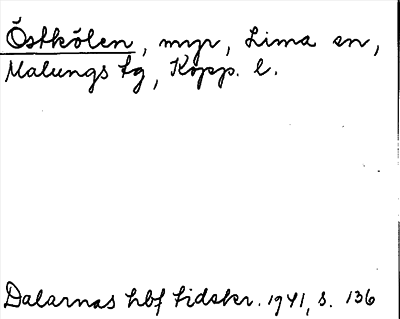 Östkölen, myr, Lima sn,
Malungs tg, Kopp. l.
Dalarnas hbf tidskr. 1941, s. 136